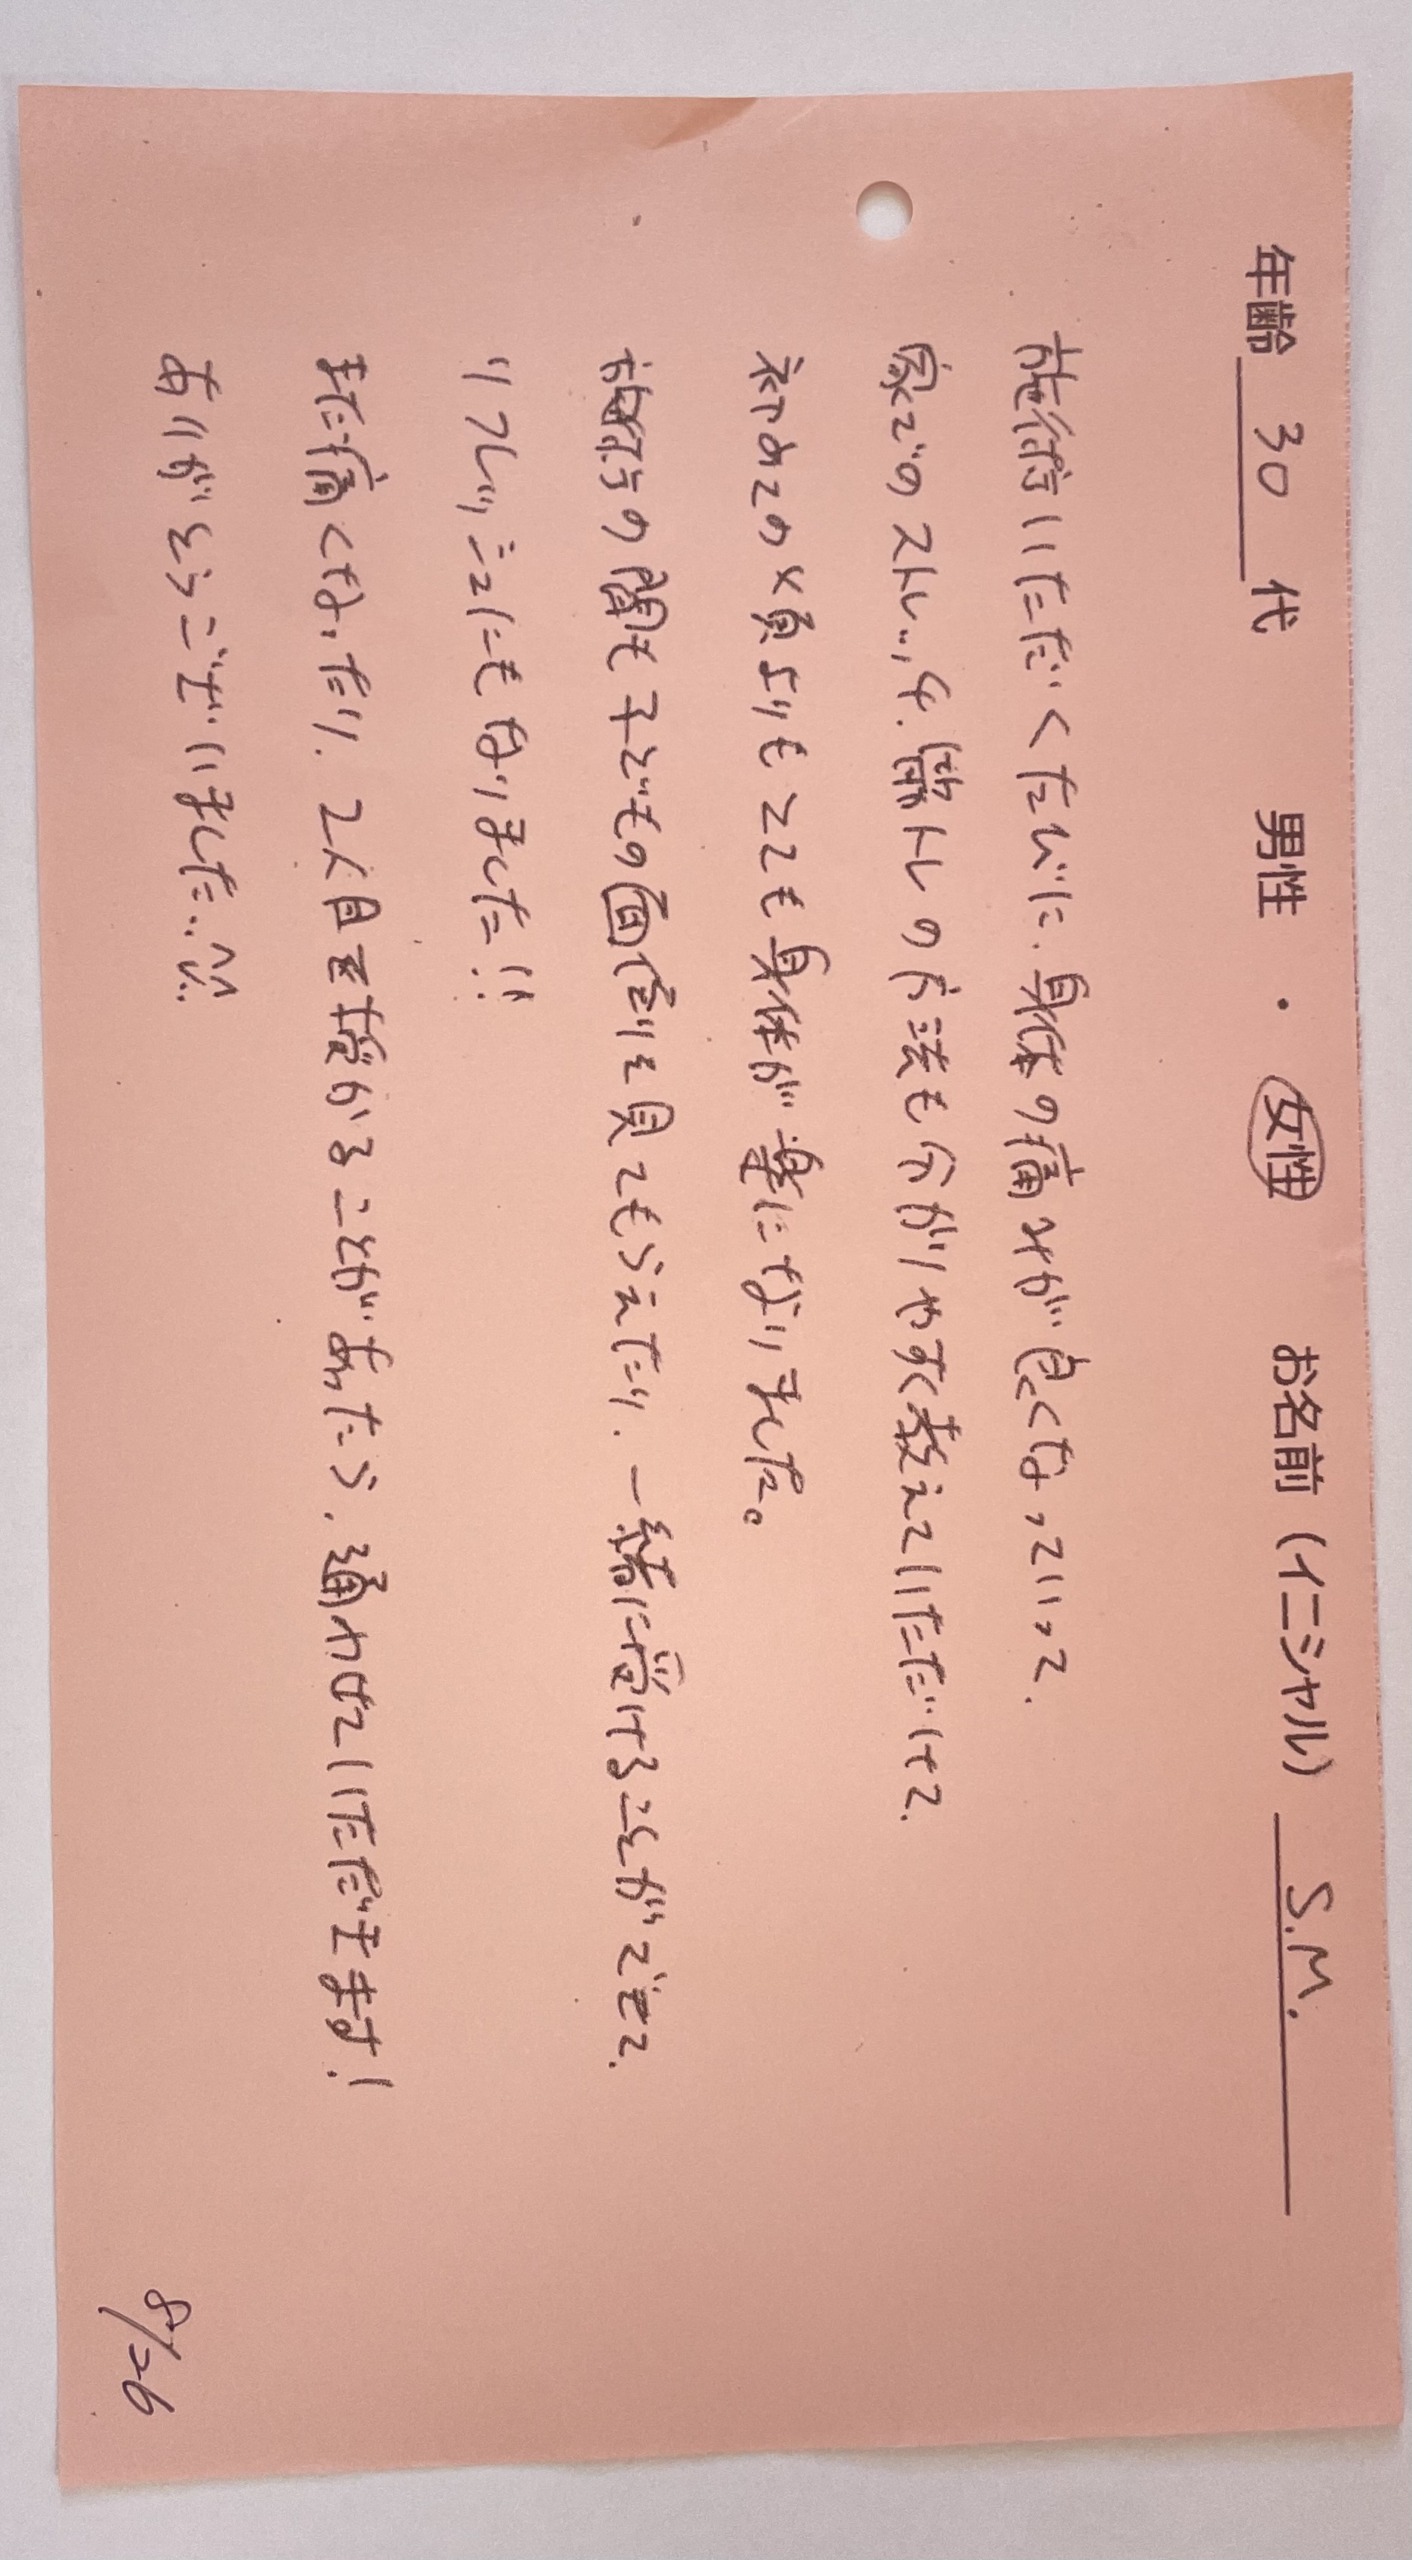 年齢 30 代 男性 ・ 女性 お名前（イニシャル） S.M.
施術いただくたびに、身体の痛みが良くなっていって、
家でのストレッチ、筋トレの方法も分かりやすく教えていただいて、
初めての時よりもとても身体が楽になりました。
施術の間も子どもの面倒を見てもらえたり、一緒に受けることができて、
リフレッシュにもなりました!!
また痛くなったり、2人目を授かることがあったら、通わせていただきます!
ありがとうございました^^
8/26